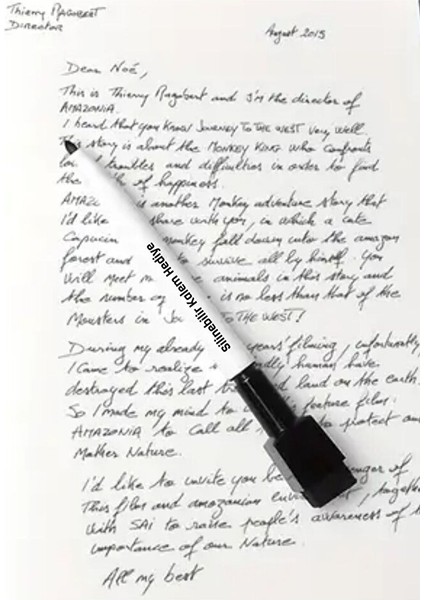 Thierry RAGOBERT
DIRECTOR
August 2015
Dear Noé,
This is Thierry Ragobert and I'm the director of
AMAZONIA.
I heard that you know JOURNEY TO THE WEST very well.
This story is about the MONKEY KING who confronts
troubles and difficulties in order to find
the of happiness.
is another Monkey adventure story that
I'd like share with you, in which a cute
Capucin monkey fall down into the amazon
forest and to survive all by himself. You
will meet animals in this story and
the number is no less than that of the
Monsters in TO THE WEST!
During my already years' filming, unfortunately
I came to realize human have
destroyed this last land on the earth.
So I made my mind to feature film
AMAZONIA to call all to protect our
Mother Nature.
I'd like to invite you
This film and amazonian
with SAI to raise people's awareness of
importance of our Nature.
All my best
Silinebilir Kalem Hediye